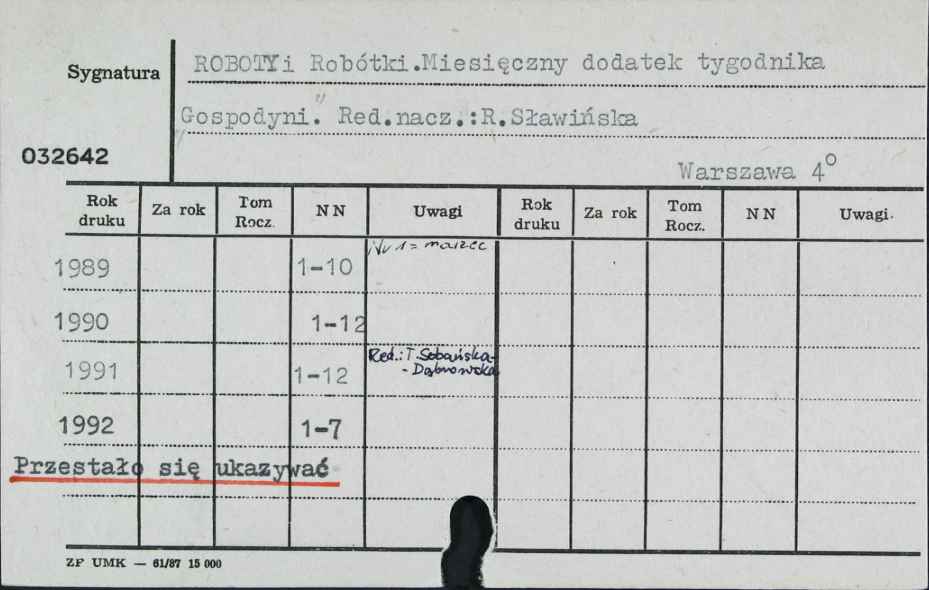 Sygnatura
ROBOTY i Robótki.Miesięczny dodatek tygodnika
Gospodyni." Red.nacz.:R.Sławińska
032642
Warszawa 4°
Rok druku Za rok Tom Rocz. NN Uwagi Rok druku Za rok Tom Rocz. NN Uwagi
Nr 1 = marzec
1989 1-10
1990 1-12
Red.: T. Sobańska-
1991 1-12 - Dąbrowska
1992 1-7
Przestało się ukazywać
ZP UMK — 61/87 15 000